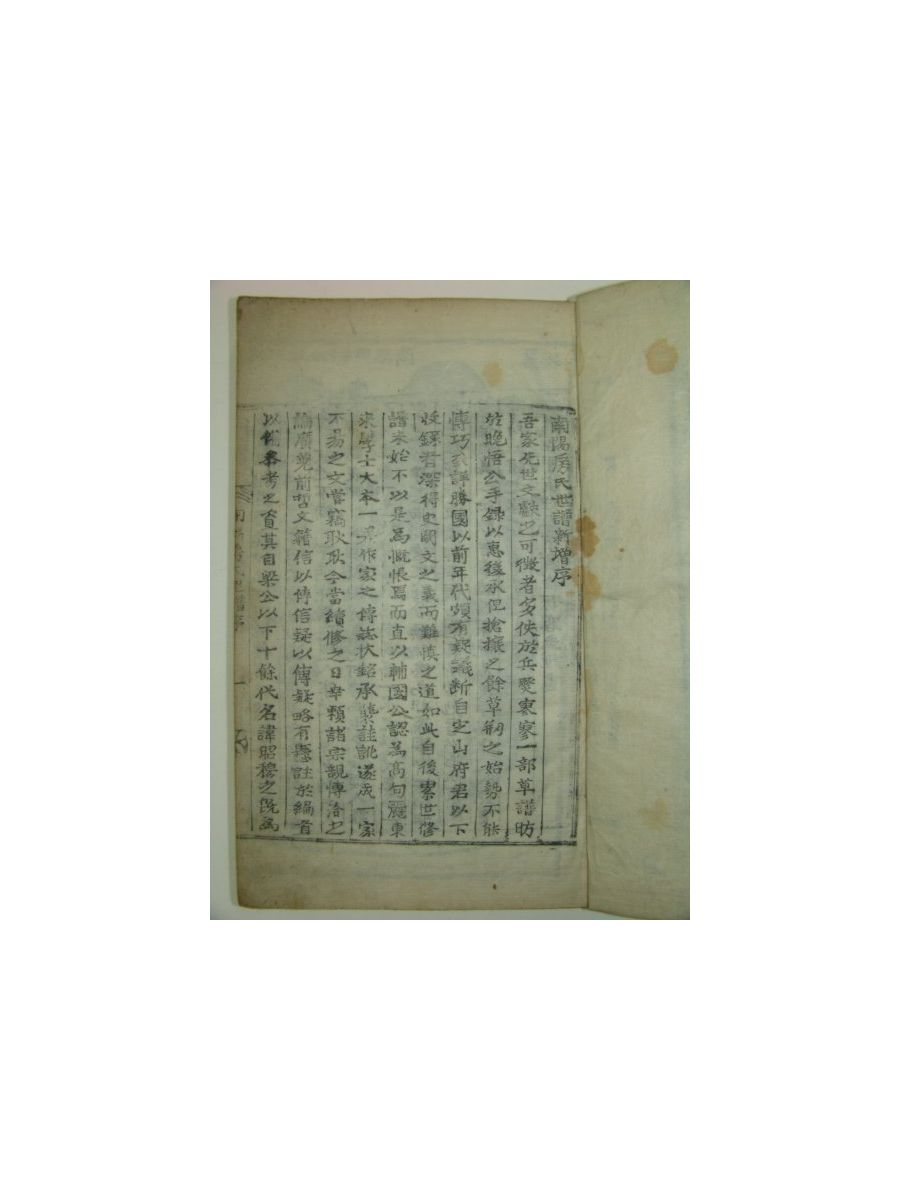 南陽房氏世譜新增序
吾家先世文獻之可徵者多佚於兵燹寒寥一部草譜昉
於晩悟公手錄以惠後承但搶攘之餘草刱之始勢不能
傳巧該詳勝國以前年代頗有疑議斷自定山府君以下
收錄者深得史闕文之義而難愼之道如此自後累世修
譜未始不以是爲慨恨焉而直以輔國公認爲高句麗東
來學士大本一 作家之傳誌狀銘承襲註訛遂成一家
不易之文嘗竊耿耿今當續修之日幸賴諸宗親博洽之
論廣覓前哲文籍信以傳信疑以傳疑略有懸註於編首
以備叅考之資其自梁公以下十餘代名諱昭穆之旣爲
南陽房氏世譜序 一